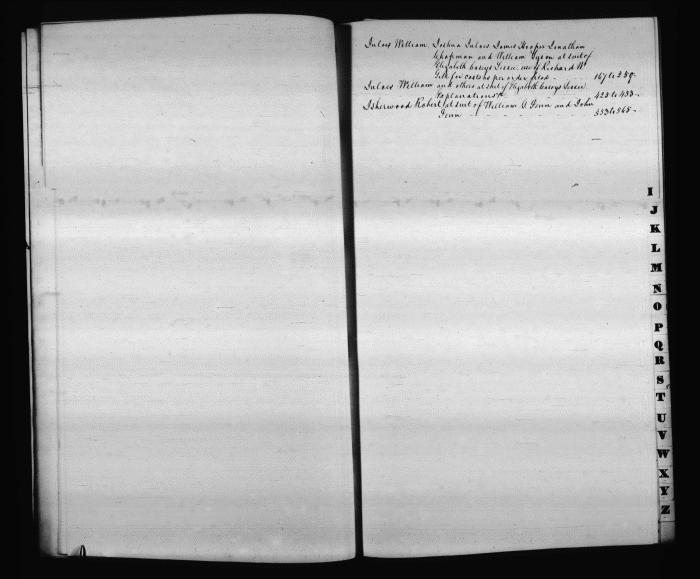 Inloes William, Joshua Inloes James Hooper Jonathan
Chapman and William Tyson at suit of
Elizabeth Caseys Lessee use of Richard W.
Gill for costs as per order filed - 167 to 250-
Inloes William and others at suit of Elizabeth Caseys Lessee
Explanations &c 425 to 433-
Isherwood Robert, at suit of William A. and John
- - - - 553 to 565-
I
J
K
L
M
N
O
P
Q
R
S
T
U
V
W
X
Y
Z